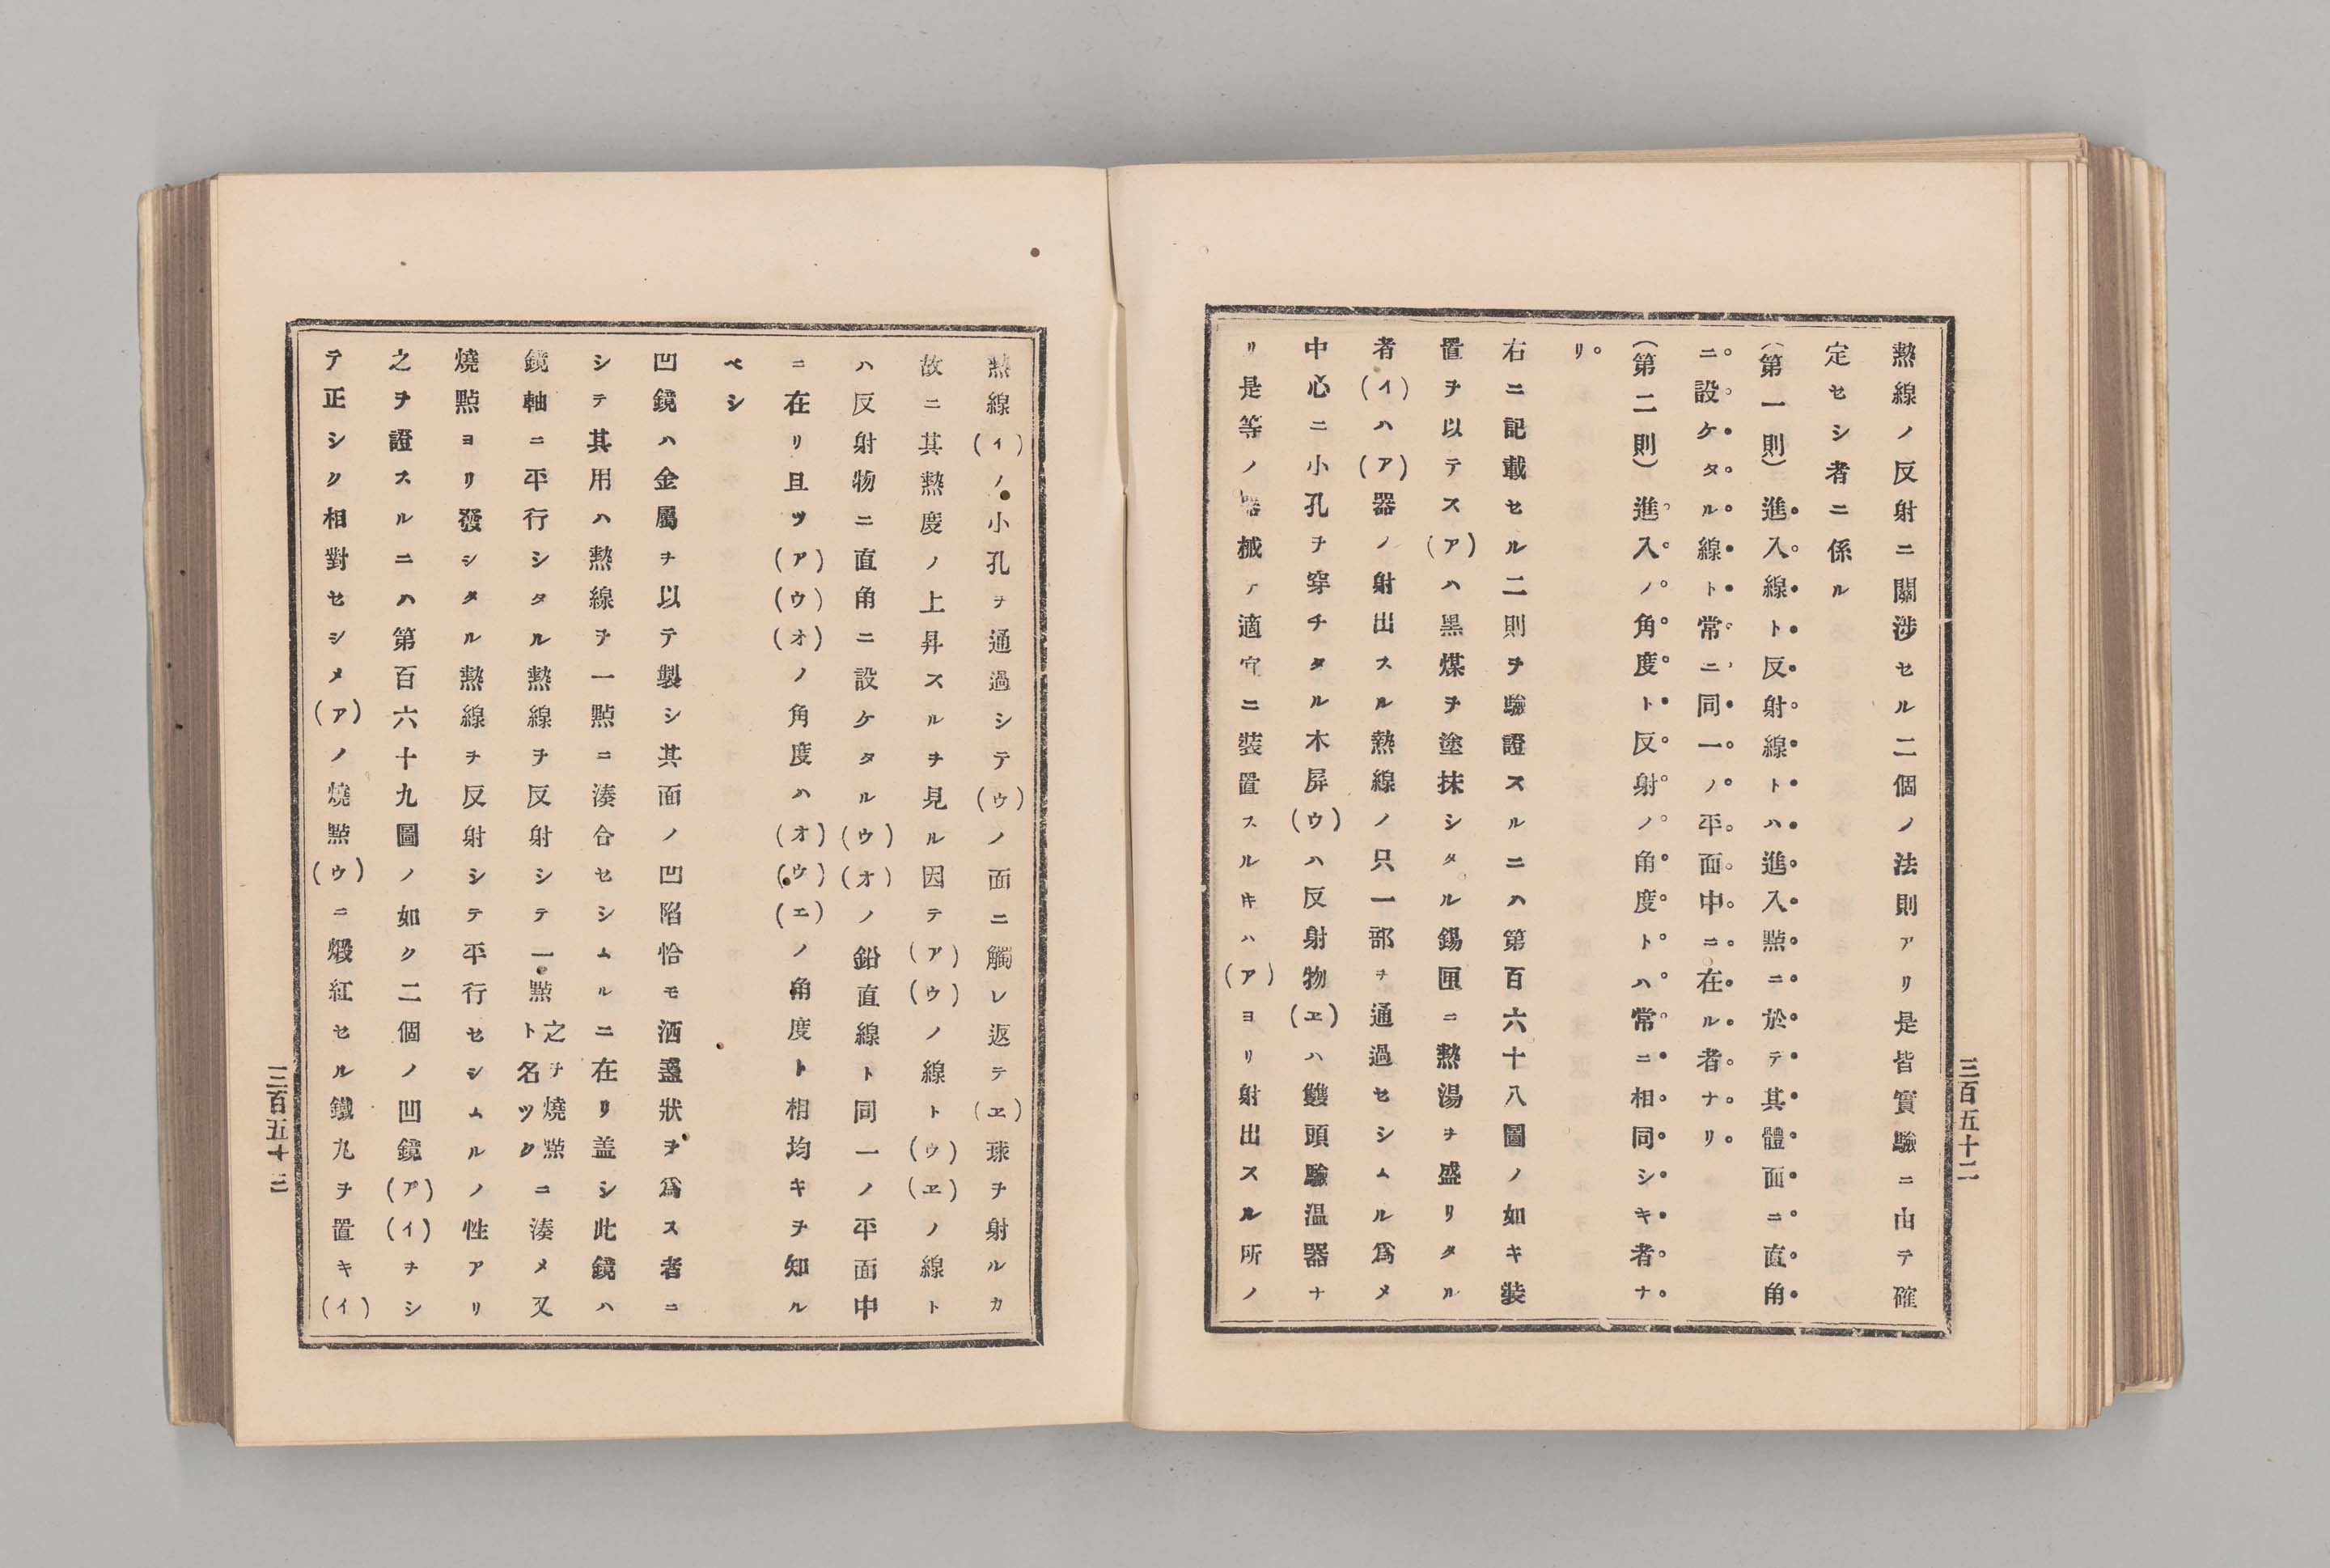 熱線ノ反射ニ關渉セル二個ノ法則アリ是皆實驗ニ由テ確
定セシ者ニ係ル
(第一則)進入線ト反射線トハ進入點ニ於テ其體面ニ直角
ニ設ケタル線ト常ニ同一ノ平面中ニ在ル者ナリ
(第二則)進入ノ角度ト反射ノ角度トハ常ニ相同シキ者ナ
リ
右ニ記載セル二則ヲ驗證スルニハ第百六十八圖ノ如キ裝
置ヲ以テス(ア)ハ黑煤ヲ塗抹シタル錫匣ニ熱湯ヲ盛リタル
者(イ)ハ(ア)器ノ射出スル熱線ノ只一部ヲ通過セシムル爲メ
中心ニ小孔ヲ穿チタル木屏(ウ)ハ反射物(ヱ)ハ雙頭驗温器ナ
リ是等ノ器械ヲ適宜ニ裝置スルキハ(ア)ヨリ射出スル所ノ
三百五十二
熱線(イ)ノ小孔ヲ通過シテ(ウ)ノ面ニ觸レ返テ(ヱ)球ヲ射ルカ
故ニ其熱度ノ上昇スルヲ見ル因テ(ア)(ウ)ノ線ト(ウ)(ヱ)ノ線ト
ハ反射物ニ直角ニ設ケタル(ウ)(オ)ノ鉛直線ト同一ノ平面中
ニ在リ且ツ(ア)(ウ)(オ)ノ角度ハ(オ)(ウ)(エ)ノ角度ト相均キヲ知ル
ベシ
凹鏡ハ金屬ヲ以テ製シ其面ノ凹陷恰モ洒盞狀ヲ爲ス者ニ
シテ其用ハ熱線ヲ一點ニ湊合セシムルニ在リ盖シ此鏡ハ
鏡軸ニ平行シタル熱線ヲ反射シテ一點之ヲ燒點ト名ツクニ湊メ又
燒點ヨリ發シタル熱線ヲ反射シテ平行セシムルノ性アリ
之ヲ證スルニハ第百六十九圖ノ如ク二個ノ凹鏡(ア)(イ)ヲシ
テ正シク相對セシメ(ア)ノ燒點(ウ)ニ煅紅セル鐵丸ヲ置キ(イ)
三百五十三